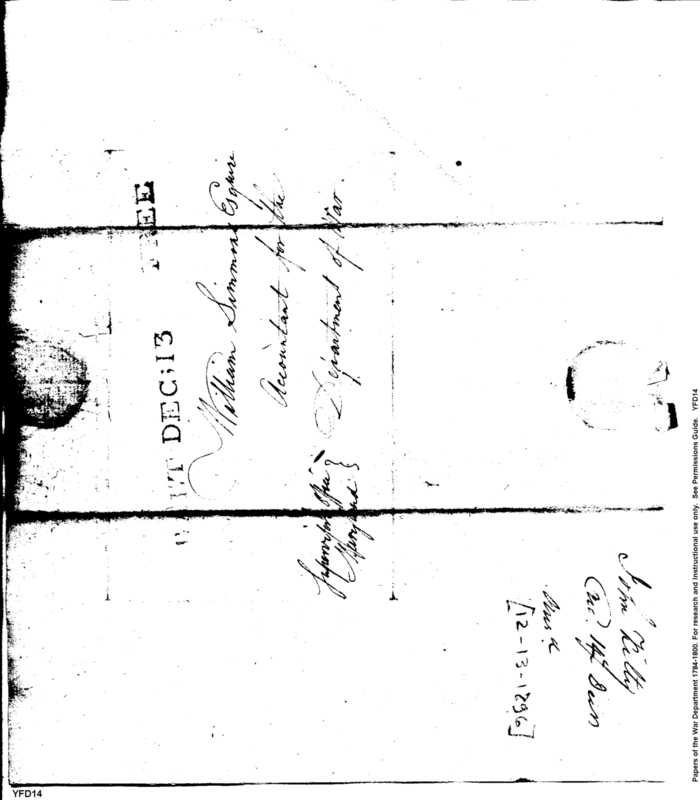 FREE
DEC:13
William Simmons Esquire
Accountant for the
Department of War.
Supervisor's Office }
Maryland }
John Kilty
[12-13-1796]
Papers of the War Department 1784-1800. For research and instructional use only. See Permissions Guide. YFD14
YFD14